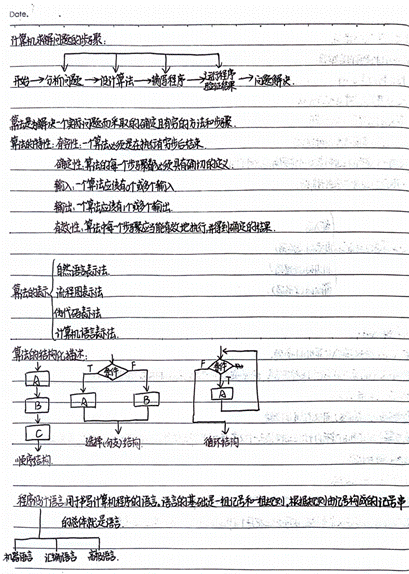 Date.
计算机求解问题的步骤:
开始→分析问题→设计算法→编写程序→运行程序验证结果→问题解决.
算法是为解决一个实际问题而采取的确定且有穷的方法和步骤.
算法的特性: 有穷性: 一个算法必须是在执行有穷步后结束.
确定性: 算法的每一个步骤都必须具有确切的定义.
输入: 一个算法应该有0个或多个输入
输出: 一个算法应该有1个或多个输出.
有效性: 算法中每一个步骤应当能有效地执行,并得到确定的结果.
自然语言表示法.
算法的表示 流程图表示法
伪代码表示法
计算机语言表示法.
算法的结构化描述:
A
B
C
顺序结构.
T 条件 F
A B
选择(分支)结构.
F 条件
T
A
循环结构
程序设计语言:用于书写计算机程序的语言,语言的基础是一组记号和一组规则,根据规则由记号构成的记号串
的总体就是语言.
机器语言 汇编语言 高级语言.